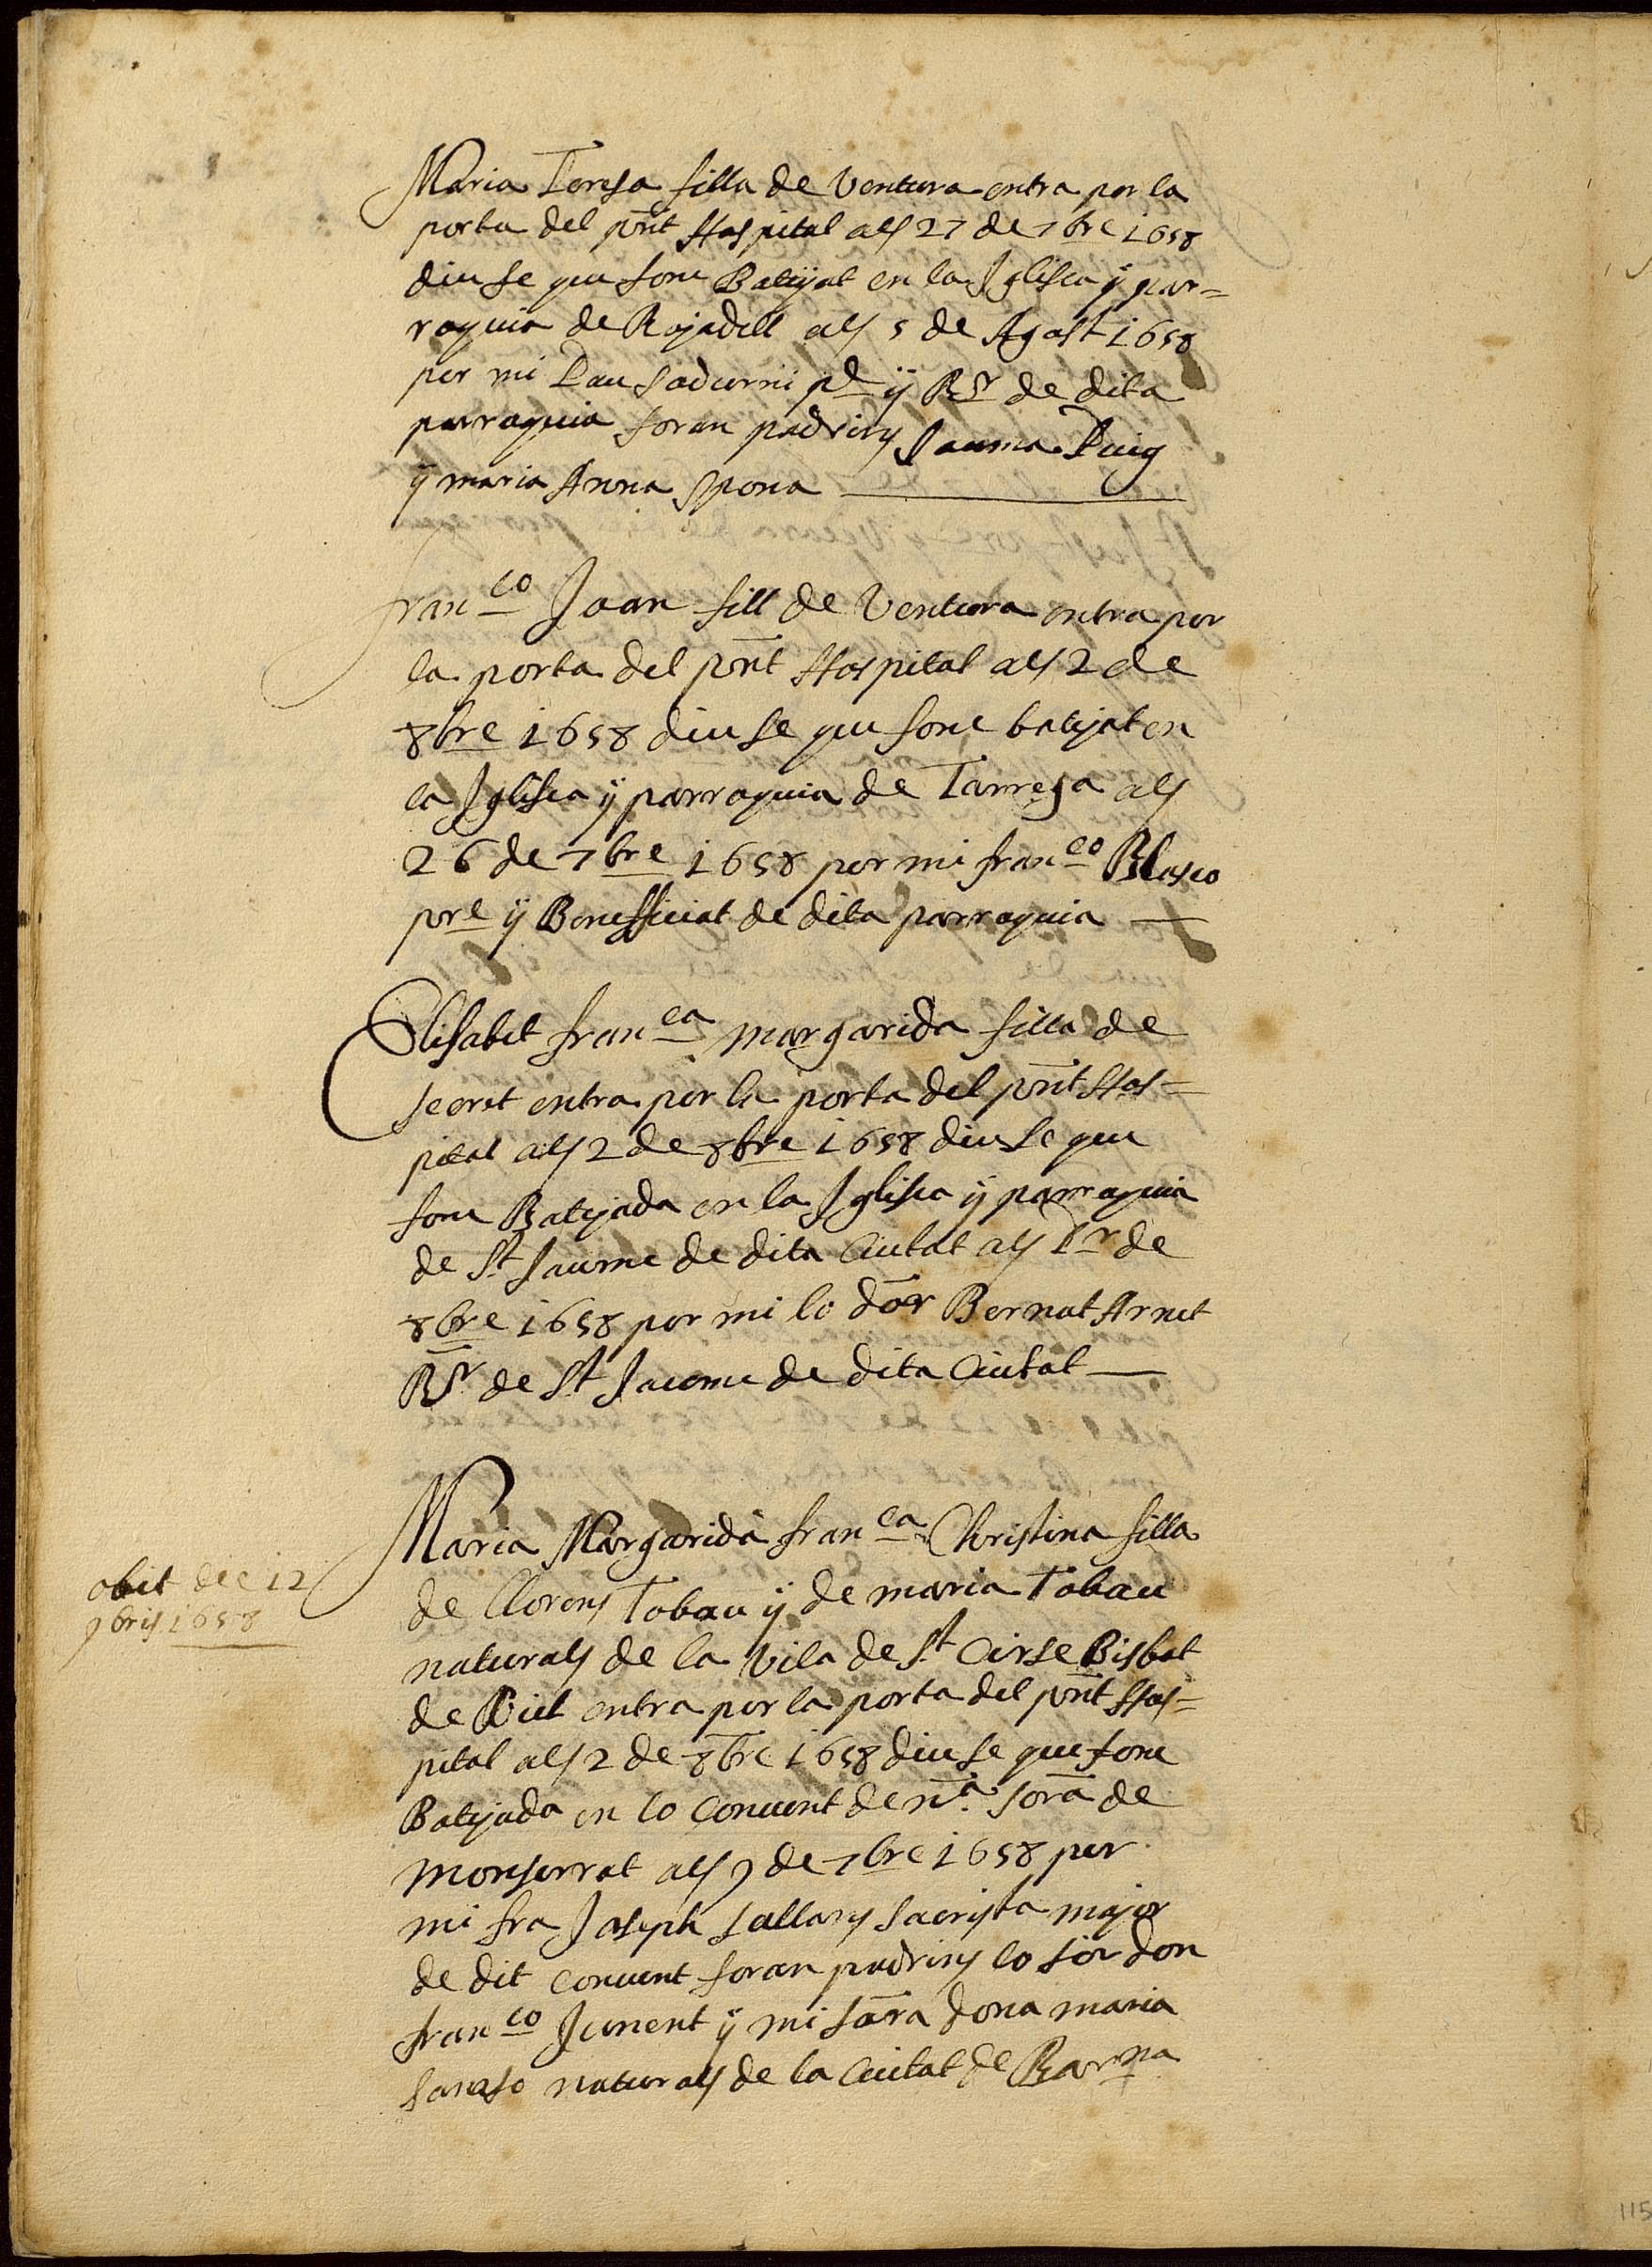 Maria Teresa filla de Ventura entra per la
porta del pnt Hospital als 27 de 7bre 1658
diu se que fonc Batyat en la Iglisia ÿ par=
roquia de Rajadell als 5 de Agost 1658
per mi Pau Sadurni pe ÿ Rr de dita
parroquia foran padrins Jauma Puig
ÿ maria Anna Spona
franco Joan fill de Ventura entra per
la porta del pnt Hospital als 2 de
8bre 1658 diu se que fonc batyat en
la Iglisia ÿ parroquia de Tarrega als
26 de 7bre 1658 per mi franco Blasco
pre ÿ Benefficiat de dita parroquia
Elisabet franca margarida filla de
secret entra per la porta del pnt Hos=
pital als 2 de 8bre 1658 diu se que
fonc Batyada en la Iglisia ÿ parroquia
de St Jaume de dita Ciutat als Pr de
8bre 1658 per mi lo dor Bernat Arnet
Rr de St Jaume de dita Ciutat
Maria Margarida franca Christina filla
de Llorens Tobau ÿ de maria Tobau
naturals de la Vila de St Cirse Bisbat
de Vich entra per la porta del pnt Hos=
pital als 2 de 8bre 1658 diu se que fonc
Batyada en lo Convent de nra. sora de
Monserrat als 9 de 7bre 1658 per
mi fra Joseph Sallans Sacrista major
de dit convent foran padrins lo sor don
franco Junent ÿ mi sara dona maria
naturals de la Ciutat de Barna
obit die 12
9bris 1658
115